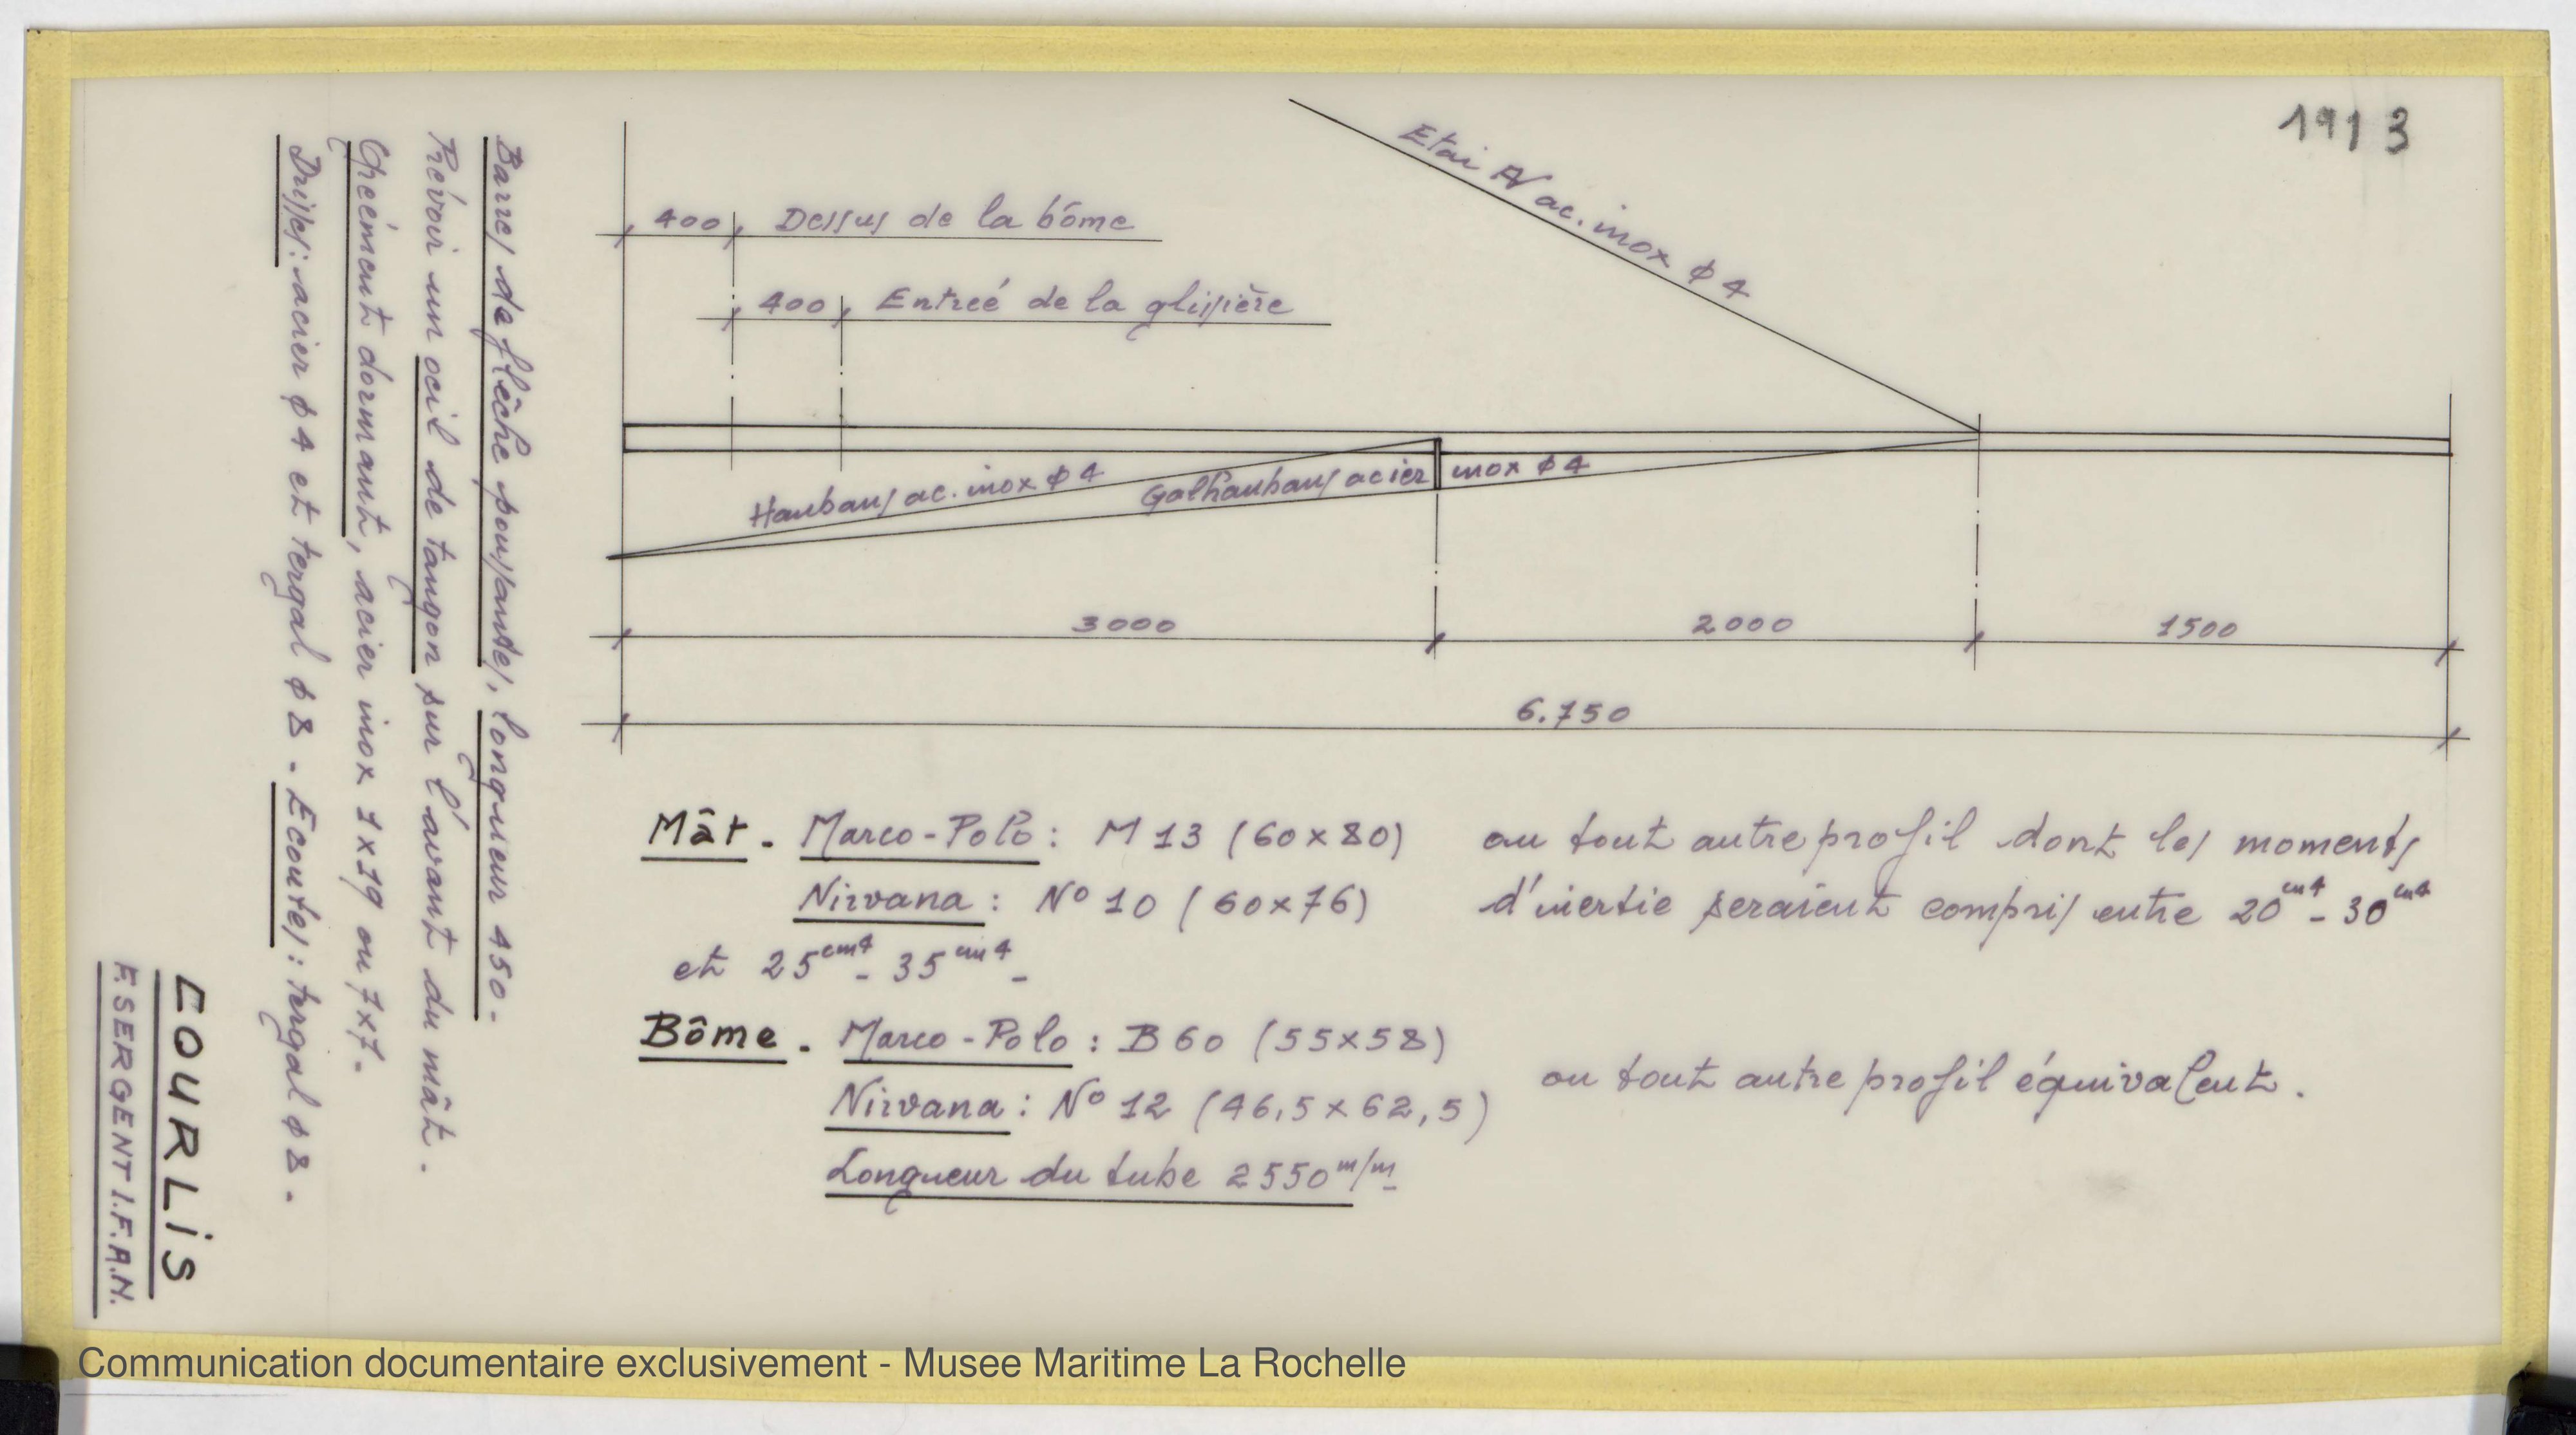 1913
Etai AV ac. inox φ 4
400 Dessus de la bôme
400 Entreé de la glissière
Haubans ac. inox φ 4
Galhaubans acier inox φ 4
3000
2000
1500
6.750
Mât - Marco-Polo : M 13 (60 x 80) ou tout autre profil dont les moments
Nirvana : N° 10 (60 x 76) d'inertie seraient compris entre 20 cm4 - 30 cm4
et 25 cm4 - 35 cm4 -
Bôme - Marco-Polo : B 60 (55 x 58)
ou tout autre profil équivalent.
Nirvana : N° 12 (46,5 x 62,5)
Longueur du tube 2550 m/m -
Barres de flèche poussantes, longueur 450 -
Prévoir un oeil de tangon sur l'avant du mât.
Gréement dormant, acier inox 1 x 19 ou 7 x 7 -
Drisses : acier φ 4 et tergal φ 8 - Ecoutes : tergal φ 8 -
COURLIS
F. SERGENT I.F.A.N.
Communication documentaire exclusivement - Musee Maritime La Rochelle